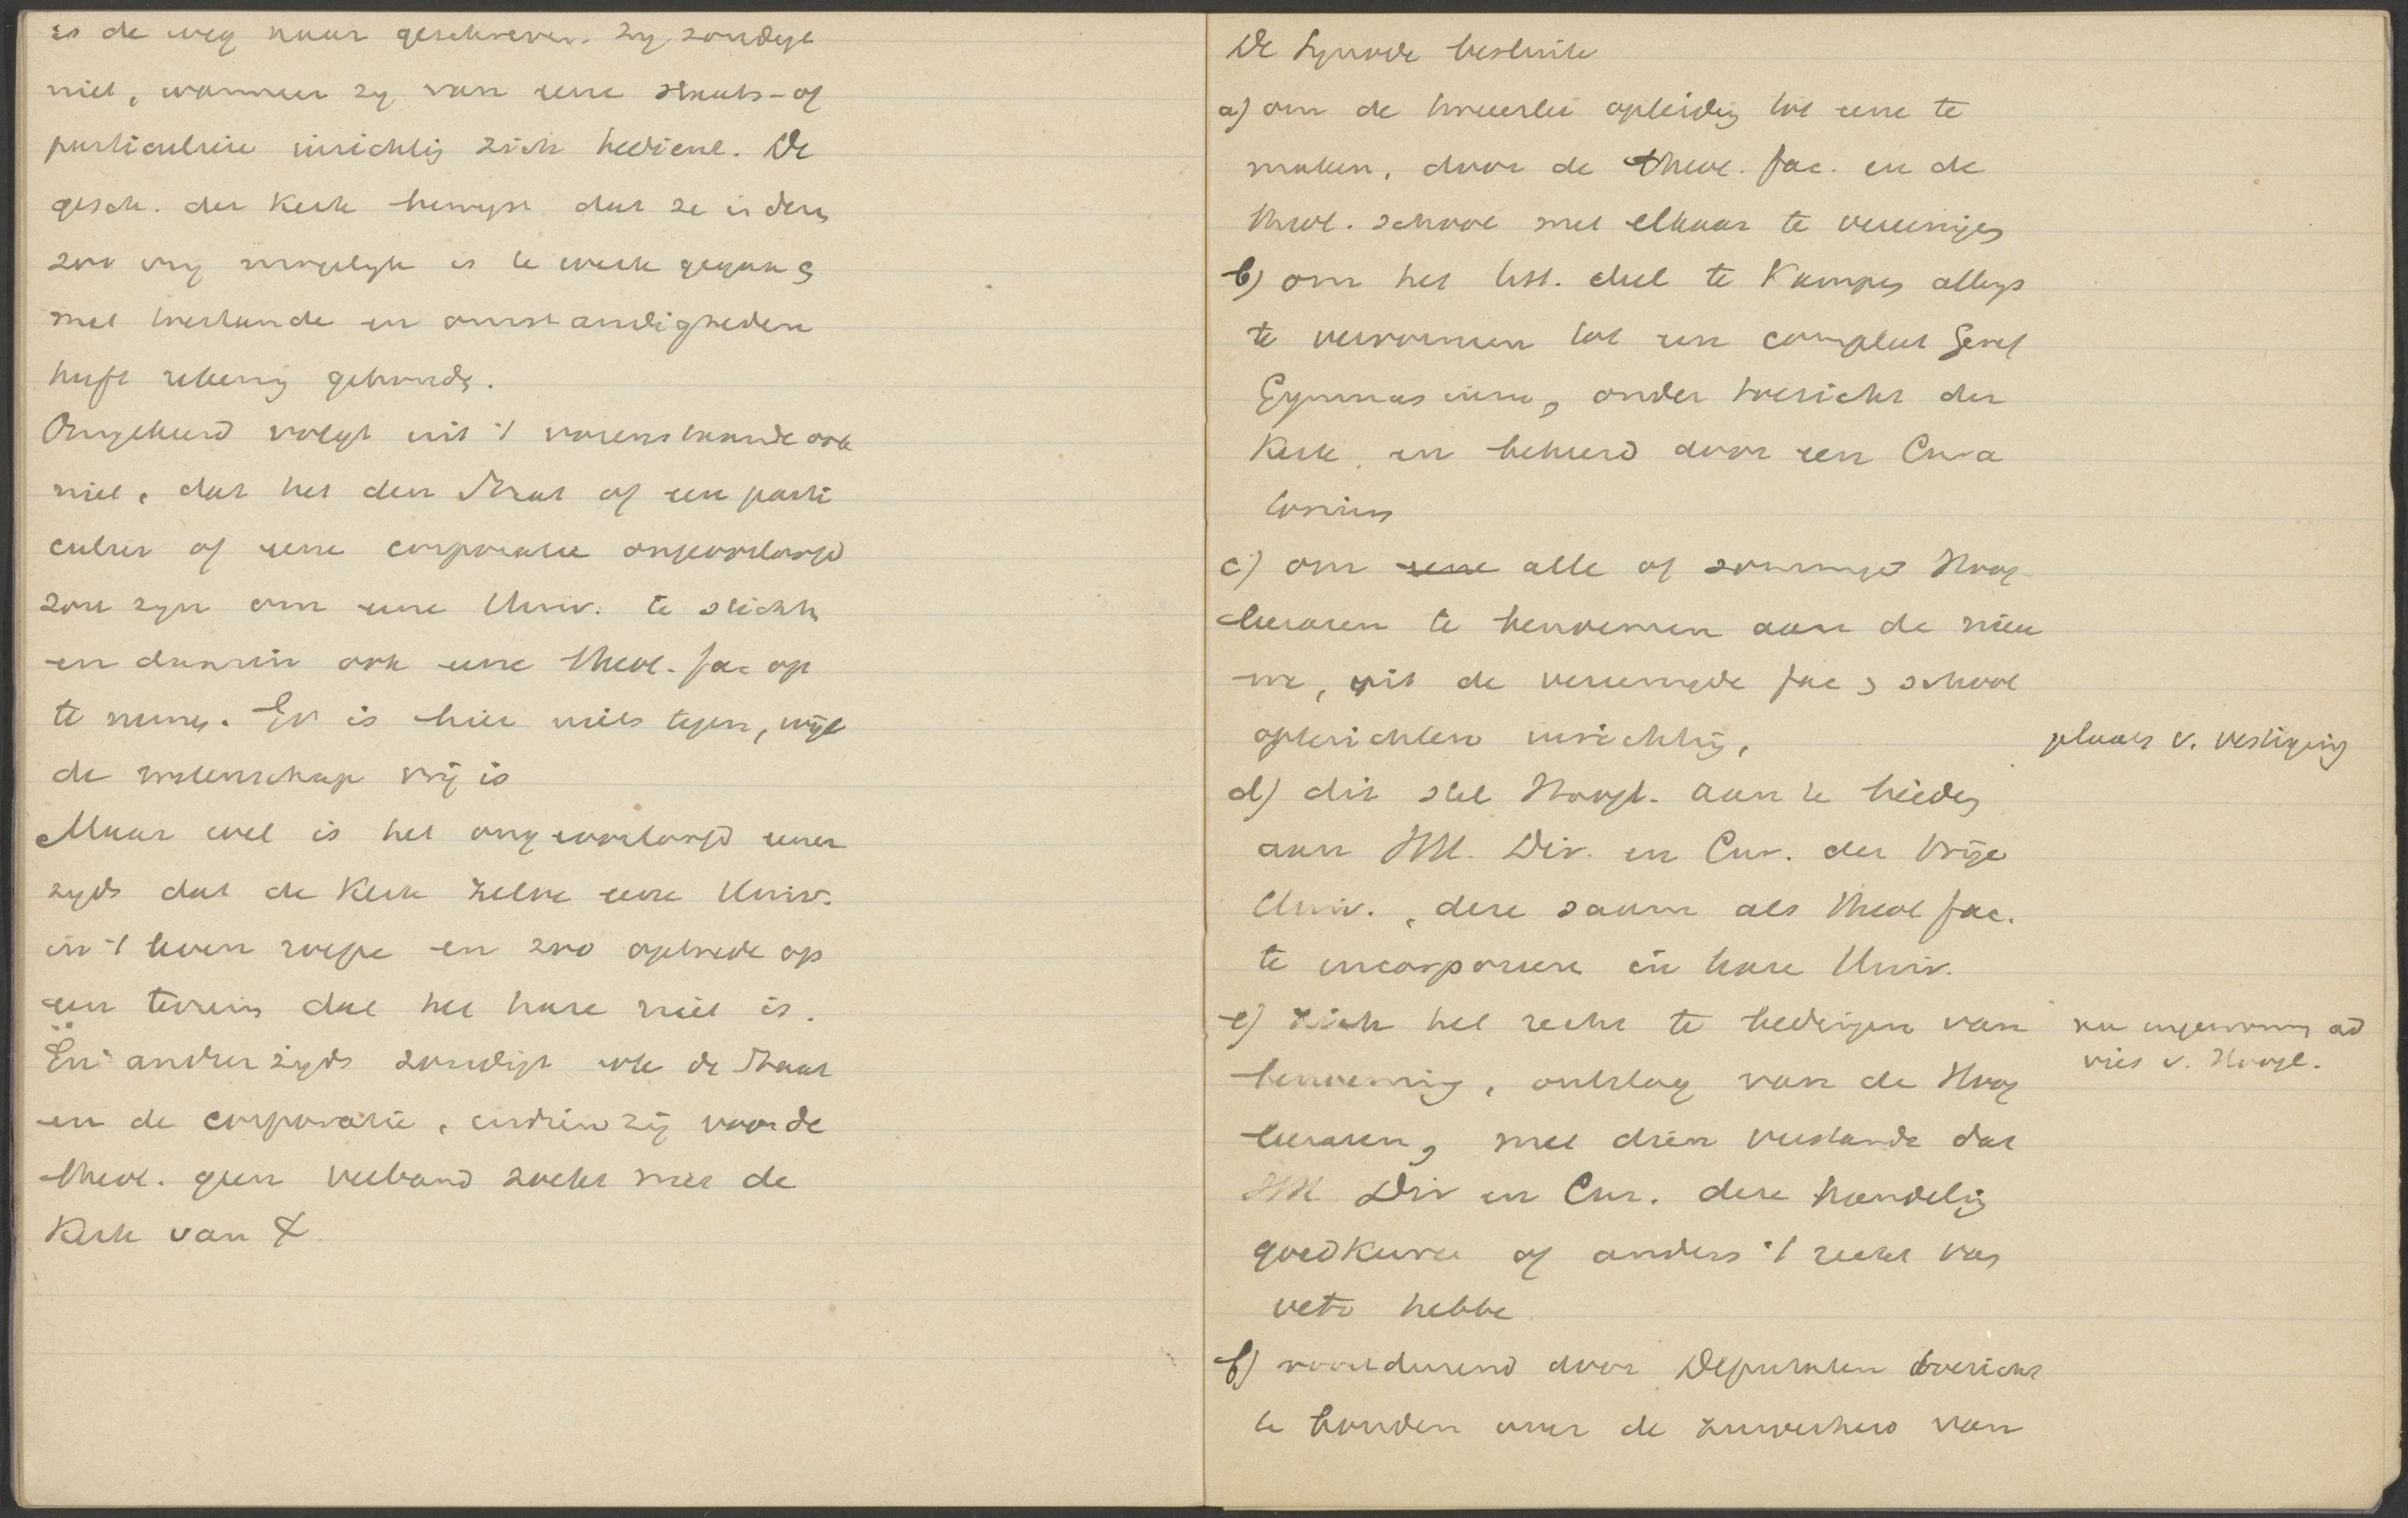 is de weg haar geschreven. Zy zondige
niet, wanneer zy van eene staats- of
particuliere inrichtig zich bediene. De
gesch. der Kerk bewyst dat ze in dezen
zoo vry mogelyk is te werk gegaan &
met toestande en omstandigheden
heeft rekening gehouden.
Omgekeerd volgt uit 't vorenstaande ook
niet, dat het den Staat of een parti
culier of eene corporatie ongeoorloofd
zou zyn om eene Univ. te stichten
en daarin ook eene theol. fac op
te nemen. Er is hier niets tegen, wijl
de wetenschap vrij is
Maar wel is het ongeoorloofd eener
zyds dat de Kerk zelve eene Univ.
in 't leven roepe en zoo optrede op
een terrein dat het hare niet is.
En anderzyds zondigt ook de Staat
en de corporatie, indien zij voor de
theol. geen verband zoekt met de
Kerk van X
De Synode besluite
a) om de tweeerlei opleidig tot eene te
maken, door de theol. fac. en de
theol. school met elkaar te vereenigen
b) om het litt. deel te Kampen allengs
te vervormen tot een compleet Geref
Gymnasium, onder toezicht der
Kerk en beheerd door een Cura
torium
c) om eene alle of sommige Hoog
leeraren te benoemen aan de nieu
we, uit de vereenigde fac & school
opterichten inrichtig,
plaats v. vestiging
d) dit stel Hoogl. aan te bieden
aan HH. Dir. en Cur. der Vrije
Univ., deze saam als theol fac.
te incorporeere in hare Univ.
e) zich het recht te bedingen van
na ingewonnen ad
vies v. Hoogl.
benoeming, ontslag van de Hoog
leeraren, met dien verstande dat
HH Dir en Cur. deze handelig
goedkeure of anders 't recht van
veto hebbe
f) voortdurend door Deputaten toezicht
te houden over de zuiverheid van